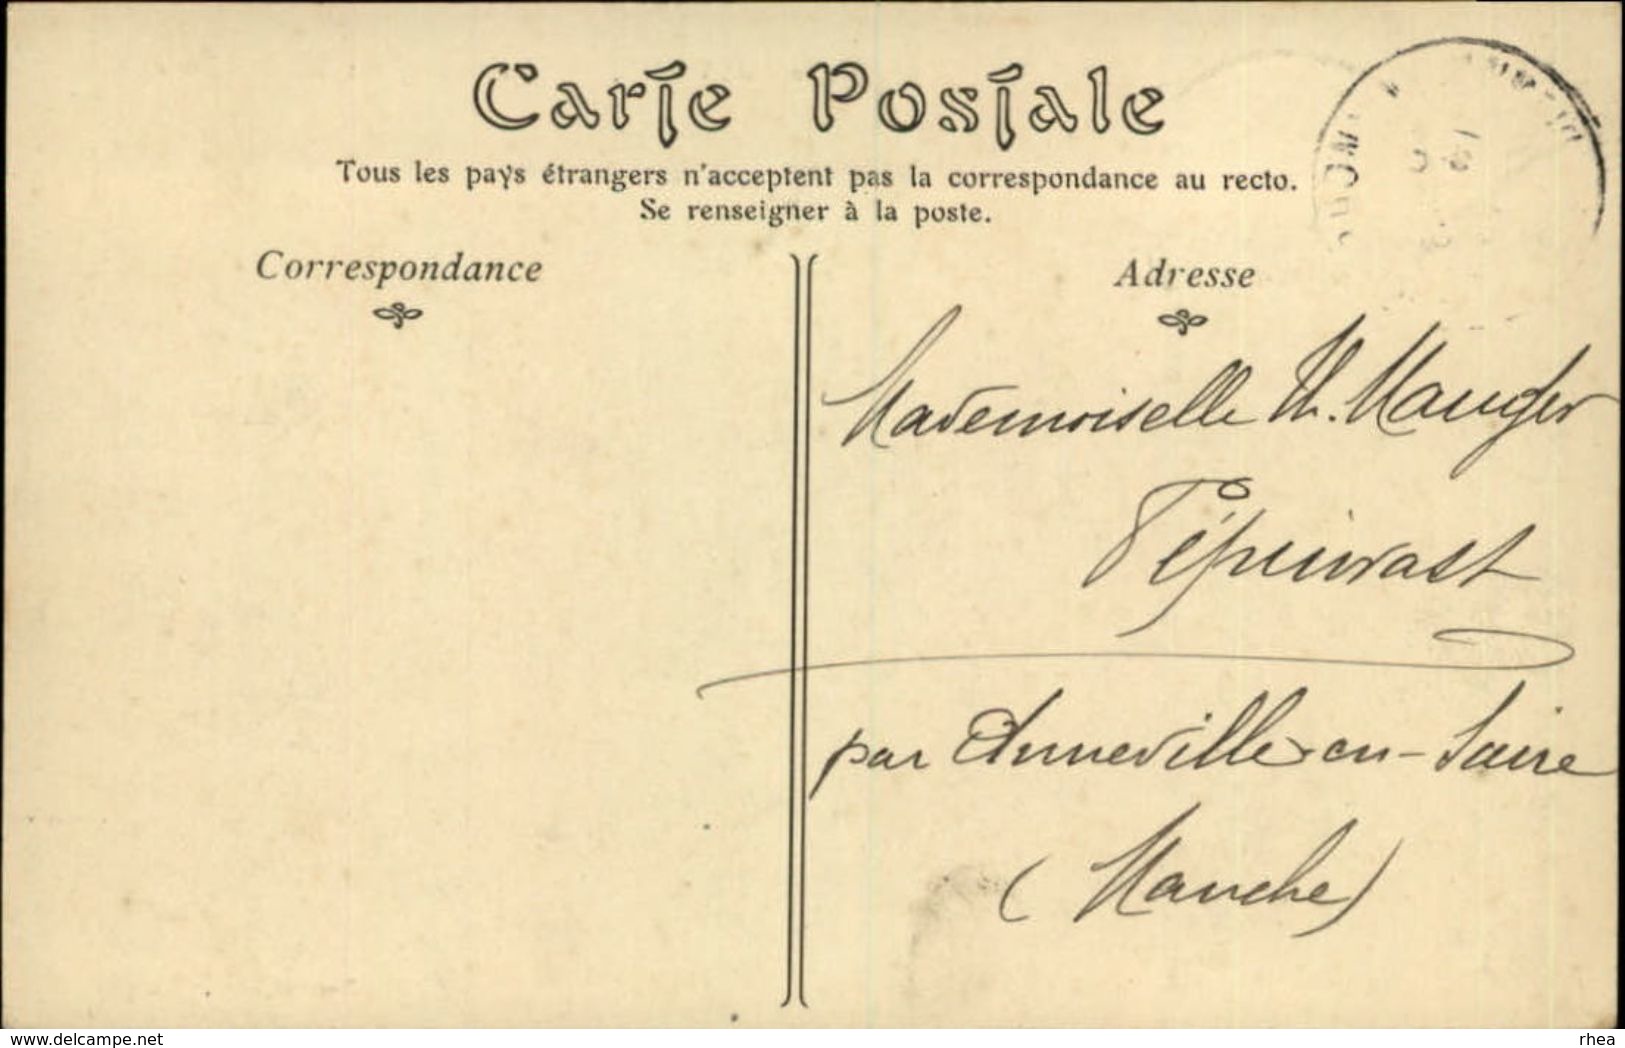 Carte Postale
Tous les pays étrangers n'acceptent pas la correspondance au recto.
Se renseigner à la poste.
Correspondance
Adresse
Mademoiselle Th. Mauger
Tépinvast
par Anneville-en-Saire
(Manche)
www.delcampe.net
rhea